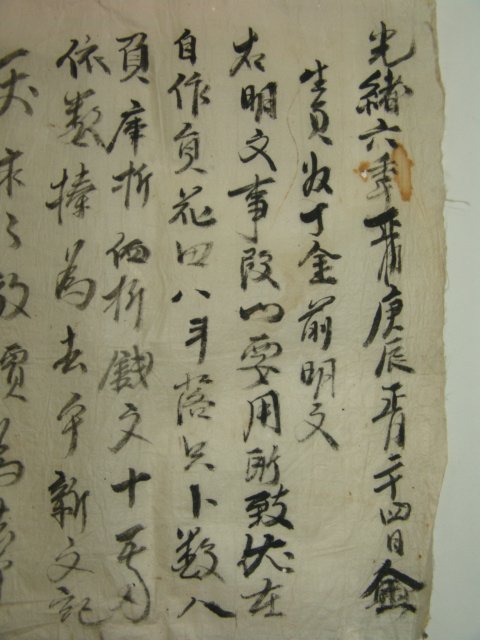 光緒六年正月庚辰正月二十四日金
生員奴丁金前明文
右明文事段以要用所致伏在
自作員花四八斗落只卜數八
負庫折価折錢文十
依數捧為去乎新文記
放賣為